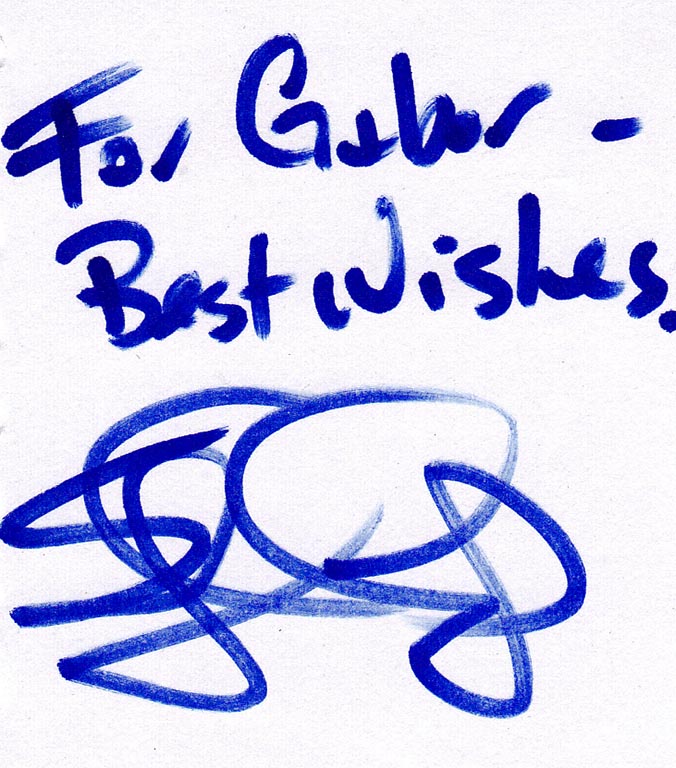 For Gabor -
Best Wishes.